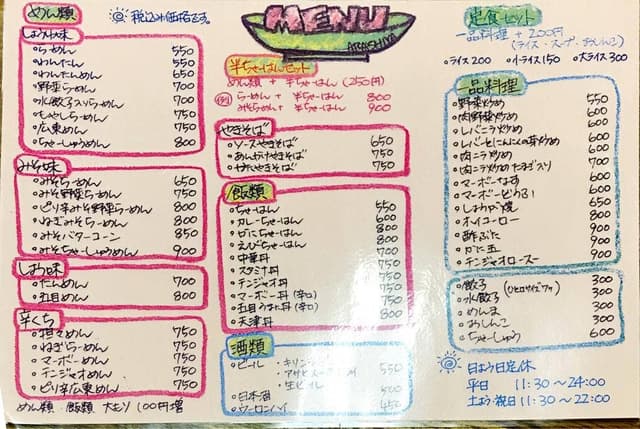 めん類
税込み価格です。
しょうゆ味
らーめん 550
わんたん 550
わんたんめん 650
野菜らーめん 700
水餃子入りらーめん 700
もやしらーめん 700
広東めん 750
ちゃーしゅうめん 800
みそ味
みそらーめん 650
みそ野菜らーめん 800
ピリ辛みそ野菜らーめん 800
ねぎみそらーめん 800
みそバターコーン 850
みそちゃーしゅうめん 900
しお味
たんめん 700
五目めん 800
辛くち
担々めん 750
ねぎらーめん 750
マーボーめん 750
チンジャオめん 750
ピリ辛広東めん 750
めん類 飯類 大もり100円増
MENU
半ちゃーはんセット
めん類 + 半ちゃーはん (250円)
例 らーめん + 半ちゃーはん 800
みそらーめん + 半ちゃーはん 900
やきそば
ソースやきそば 650
あんかけやきそば 750
かたいやきそば 750
飯類
ちゃーはん 550
カレーちゃーはん 600
カニちゃーはん 800
えびちゃーはん 800
中華丼 700
スタミナ丼 750
チンジャオ丼 750
マーボー丼 (辛口) 750
五目うま煮丼 (辛口) 800
天津丼 800
酒類
ビール ・キリン
・アサヒ 550
・生ビール
日本酒 500
ウーロンハイ 450
定食セット
一品料理 + 200円
(ライス・スープ・おしんこ)
ライス 200 小ライス 150 大ライス 300
一品料理
野菜炒め 550
肉野菜炒め 600
レバニラ炒め 600
レバーとにんにくの芽炒め 600
肉ニラ炒め 600
肉ニラ炒めたまご入り 700
マーボーなす 600
マーボーどうふ 600
しょうが焼 650
ホイコーロー 800
酢ぶた 900
かに玉 900
チンジャオロースー 900
餃子 300
水餃子 (ひとロサイズ7ヶ) 300
めんま 300
おしんこ 300
ちゃーしゅう 600
日よう日定休
平日 11:30〜24:00
土よう・祝日 11:30〜22:00